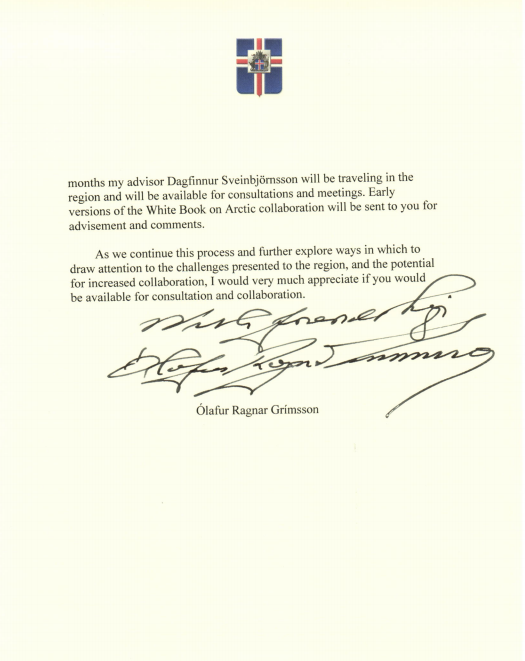 months my advisor Dagfinnur Sveinbjörnsson will be traveling in the
region and will be available for consultations and meetings. Early
versions of the White Book on Arctic collaboration will be sent to you for
advisement and comments.
As we continue this process and further explore ways in which to
draw attention to the challenges presented to the region, and the potential
for increased collaboration, I would very much appreciate if you would
be available for consultation and collaboration.
Ólafur Ragnar Grimsson
Ólafur Ragnar Grimsson